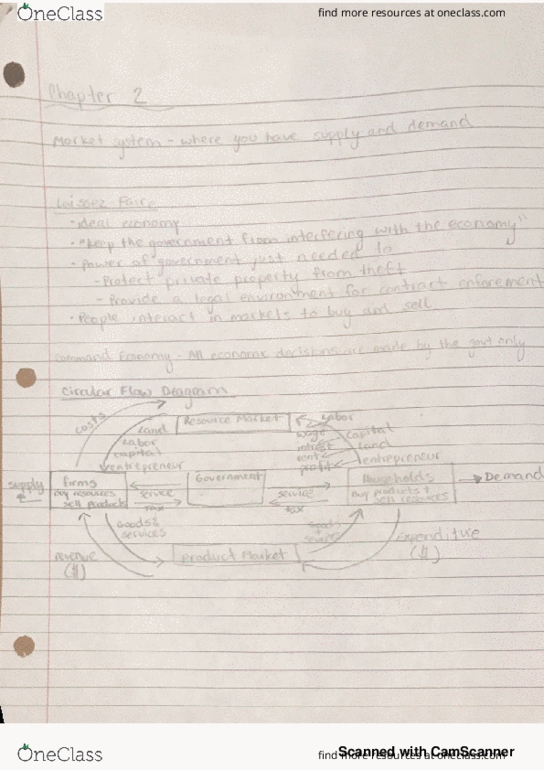 OneClass
find more resources at oneclass.com
Chapter 2
Market system - where you have supply and demand
Laissez Faire
- ideal economy
- "keep the government from interfering with the economy"
- Power of government just needed to
- Protect private property from theft
- Provide a legal environment for contract enforcement
- People interact in markets to buy and sell
Command Economy - All economic decisions are made by the govt only
Circular Flow Diagram
costs
Resource Market
Land
Labor
capital
entrepreneur
Labor
wage
interest
rent
profit
Capital
Land
entrepreneur
supply
firms
buy resources
sell products
service
tax
Government
service
tax
Households
Buy products +
sell resources
Demand
Goods &
services
Goods
+
service
Product Market
revenue
($)
Expenditure
($)
OneClass
find more resources at oneclass.com
Scanned with CamScanner